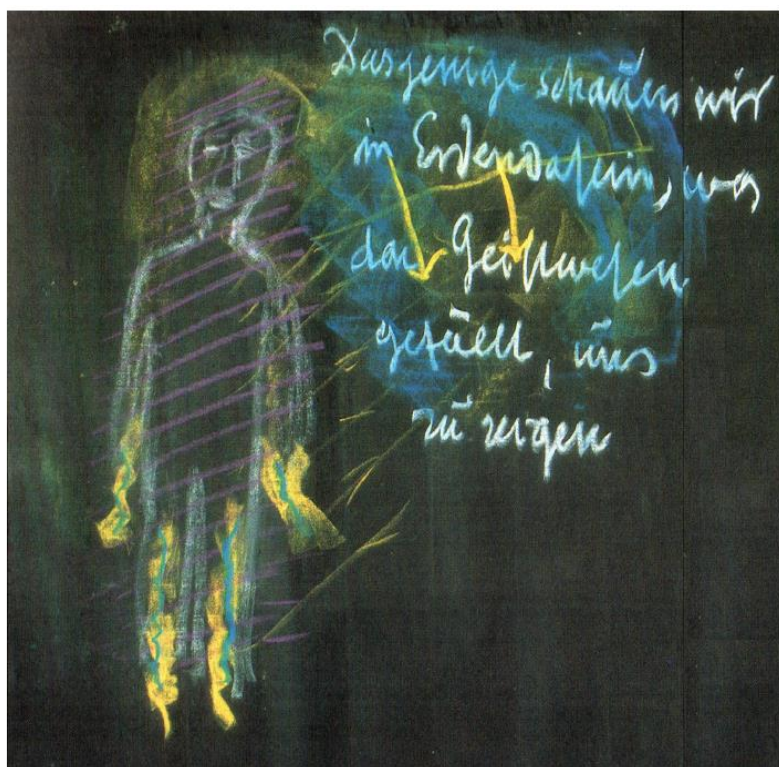 Dasjenige schauen wir
in Erdendasein, was
das Geistwesen
gefällt, uns
zu zeigen